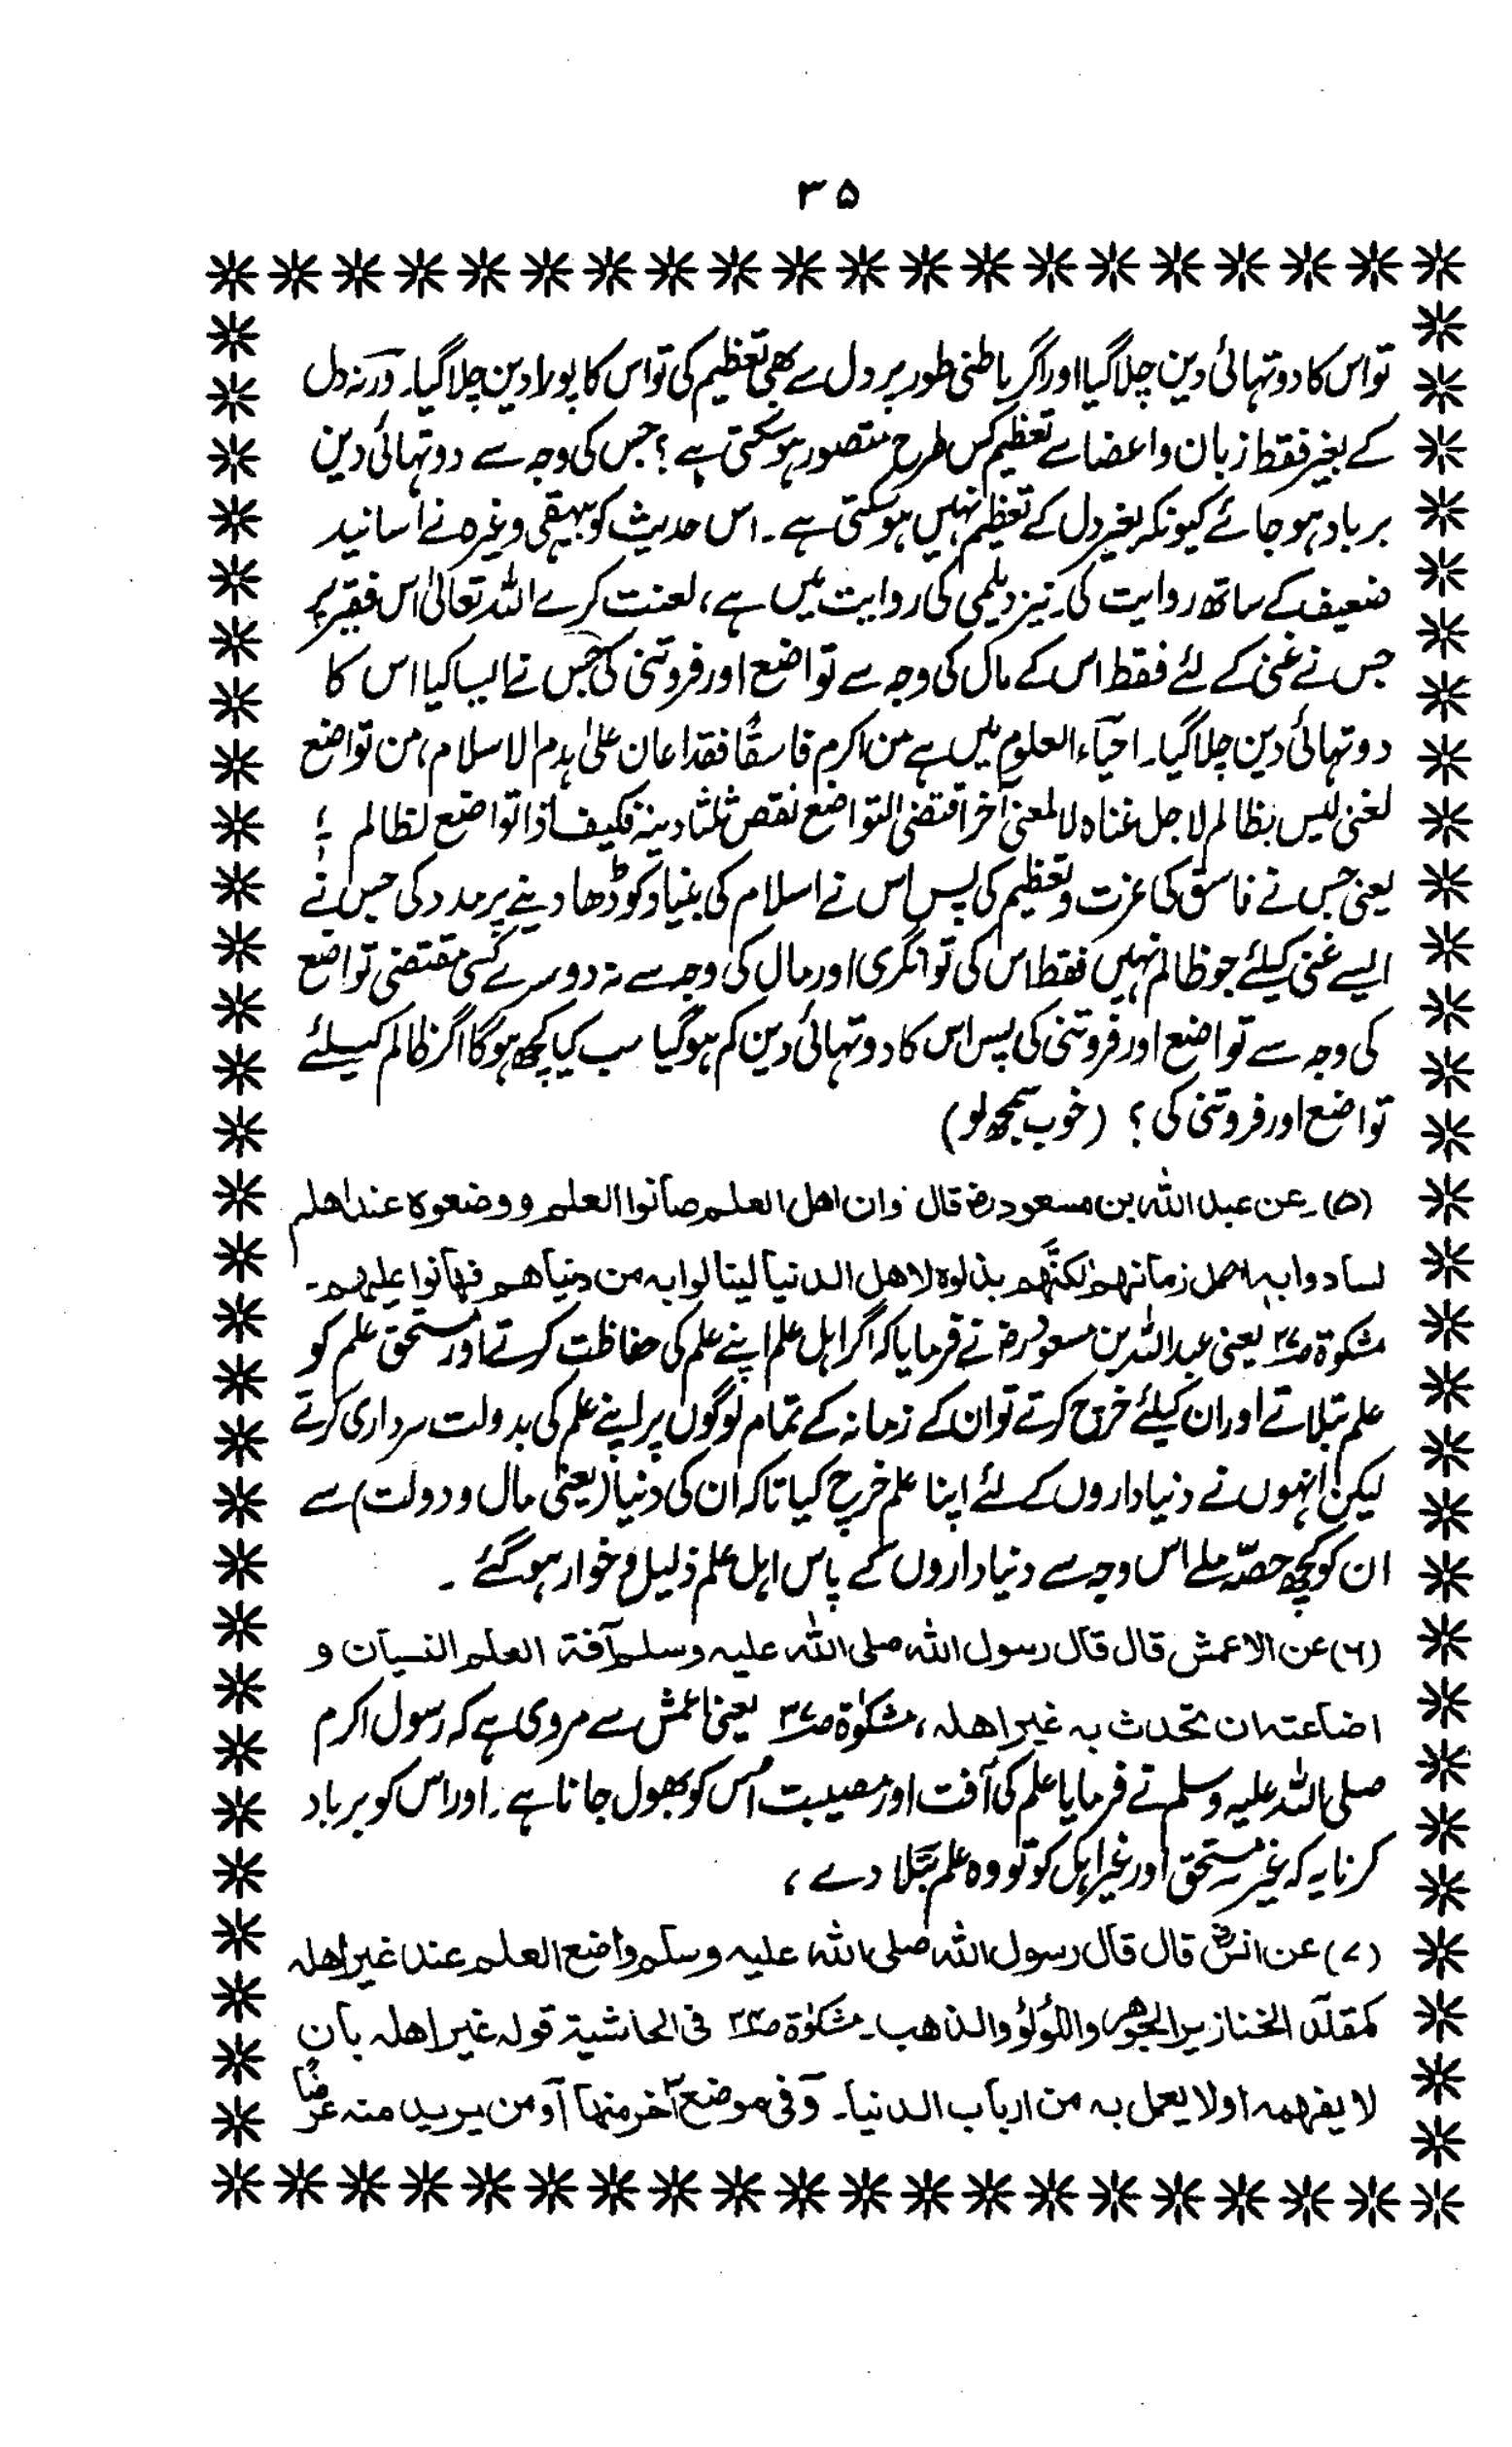 ۳۵
تو اس کا دو تہائی دین چلا گیا اور اگر باطنی طور پر دل سے بھی تعظیم کی تو اس کا پورا دین چلا گیا۔ ورنہ دل
کے بغیر فقط زبان و اعضا سے تعظیم کس طرح متصور ہو سکتی ہے ؟ جس کی وجہ سے دو تہائی دین
برباد ہو جائے کیونکہ بغیر دل کے تعظیم نہیں ہو سکتی ہے۔ اس حدیث کو بیہقی وغیرہ نے اسانید
ضعیف کے ساتھ روایت کی۔ نیز دیلمی کی روایت میں ہے، لعنت کرے اللہ تعالیٰ اس فقیر پر
جس نے غنی کے لئے فقط اس کے مال کی وجہ سے تواضع اور فروتنی کی جس نے ایسا کیا اس کا
دو تہائی دین چلا گیا۔ احیاء العلوم میں ہے من اکرم فاسقًا فقد اعان علیٰ ہدم الاسلام، من تواضع
لغنی لیس بظالم لاجل غناہ لا لمعنی آخر اقتضی التواضع نقص ثلثا دینہ فکیف اذا تواضع لظالم ؛
یعنی جس نے فاسق کی عزت و تعظیم کی پس اس نے اسلام کی بنیاد کو ڈھا دینے پر مدد کی جس نے
ایسے غنی کیلئے جو ظالم نہیں فقط اس کی توانگری اور مال کی وجہ سے نہ دوسرے کسی مقتضی تواضع
کی وجہ سے تواضع اور فروتنی کی پس اس کا دو تہائی دین کم ہو گیا سب کیا کچھ ہوگا اگر ظالم کیلئے
تواضع اور فروتنی کی ؟ (خوب سمجھ لو)
(۵)۔ عن عبد اللہ بن مسعودرض قال وان اھل العلم صانوا العلم ووضعوہ عند اھلہ
لسادوا بہ اھل زمانھم ولکنّھم بذلوہ لاھل الدنیا لینالوا بہ من دنیاھم فھانوا علیھم۔
مشکوۃ ص۳۷ یعنی عبد اللہ بن مسعودرض نے فرمایا کہ اگر اہل علم اپنے علم کی حفاظت کرتے اور مستحق علم کو
علم بتلاتے اور ان کیلئے خرچ کرتے تو ان کے زمانہ کے تمام لوگوں پر اپنے علم کی بدولت سرداری کرتے
لیکن انہوں نے دنیاداروں کے لئے اپنا علم خرچ کیا تاکہ ان کی دنیا (یعنی مال و دولت) سے
ان کو کچھ حصّہ ملے اس وجہ سے دنیاداروں کے پاس اہل علم ذلیل و خوار ہو گئے ۔
(۶) عن الاعمش قال قال رسول اللہ صلی اللہ علیہ وسلم آفۃ العلم النسیان و
اضاعتہ ان تحدث بہ غیر اھلہ، مشکوٰۃ ص۳۷ یعنی اعمش سے مروی ہے کہ رسول اکرم
صلی اللہ علیہ وسلم نے فرمایا علم کی آفت اور مصیبت اس کو بھول جانا ہے۔ اور اس کو برباد
کرنا یہ کہ غیر مستحق اور غیر اہل کو تو وہ علم بتلا دے ،
(۷) عن انسرض قال قال رسول اللہ صلی اللہ علیہ وسلم واضع العلم عند غیر اھلہ
کمقلد الخنازیر الجوھر واللؤلؤ والذھب۔ مشکوٰۃ ص۳۴ فی الحاشیۃ قولہ غیر اھلہ بان
لا یفھمہ او لا یعمل بہ من ارباب الدنیا۔ وفی موضع آخر منھا او من یرید منہ عرضًا